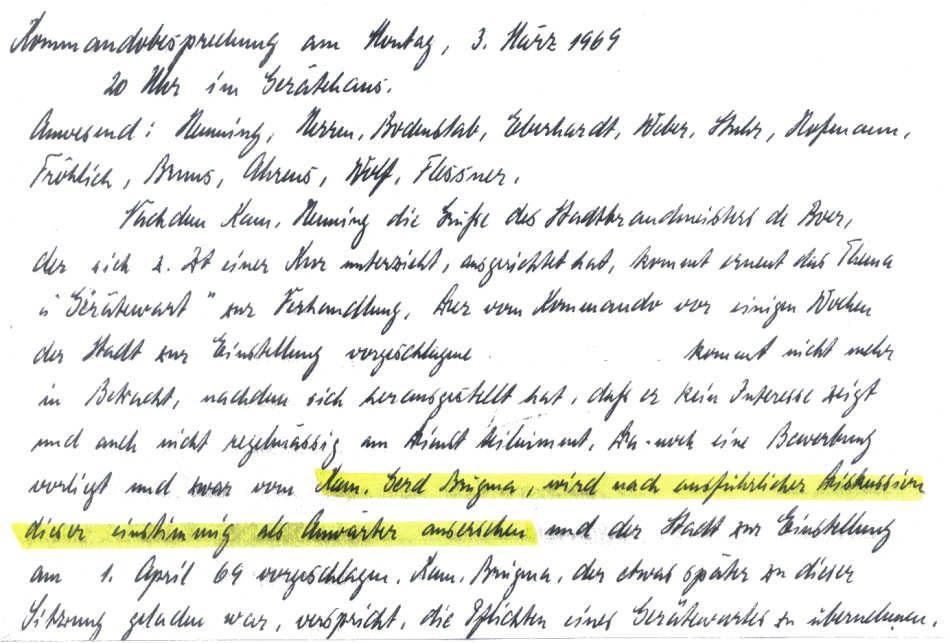 Kommandobesprechung am Montag, 3. März 1969
20 Uhr im Gerätehaus.
Anwesend: Henning, Herren, Bodenstab, Eberhardt, Weber, Stuhr, Hofmann,
Fröhlich, Bruns, Ahrens, Wolf, Flessner.
Nachdem Kam. Henning die Grüße des Stadtbrandmeisters de Boer,
der sich z. Zt einer Kur unterzieht, ausgerichtet hat, kommt erneut das Thema
"Gerätewart" zur Verhandlung. Der vom Kommando vor einigen Wochen
der Stadt zur Einstellung vorgeschlagene kommt nicht mehr
in Betracht, nachdem sich herausgestellt hat, daß er kein Interesse zeigt
und auch nicht regelmässig am Dienst teilnimmt. Da noch eine Bewerbung
vorliegt und zwar vom Kam. Gerd Brugma, wird nach ausführlicher Diskussion
dieser einstimmig als Anwärter ausersehen und der Stadt zur Einstellung
am 1. April 69 vorgeschlagen. Kam. Brugma, der etwas später zu dieser
Sitzung geladen war, verspricht, die Pflichten eines Gerätewartes zu übernehmen.